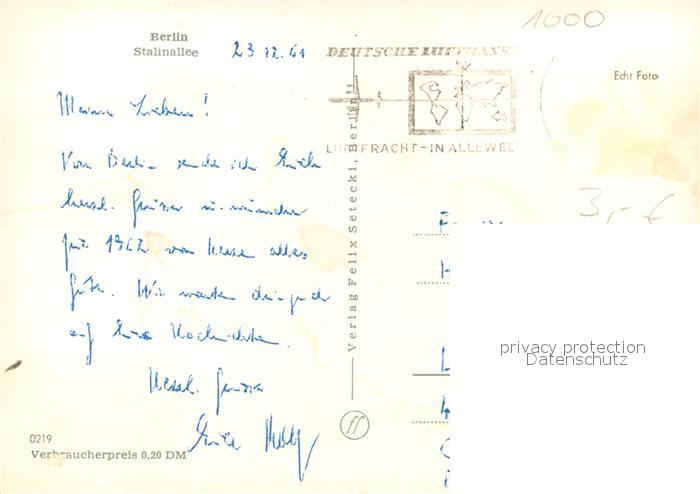 Berlin
Stalinallee
23.12.61
1000
DEUTSCHE LUFTHANS
Echt Foto
Meine Lieben!
LUFTFRACHT-IN ALLE WELT
Von Berlin sende ich Euch
herzl. Grüsse u. wünsche
für 1962 von Herzen alles
Gute. Wir warten dringend
auf Eure Nachrichten.
Herzl. Grüsse
Verlag Felix Setecki, Berlin
3,- €
privacy protection
Datenschutz
0219
Verbraucherpreis 0,20 DM